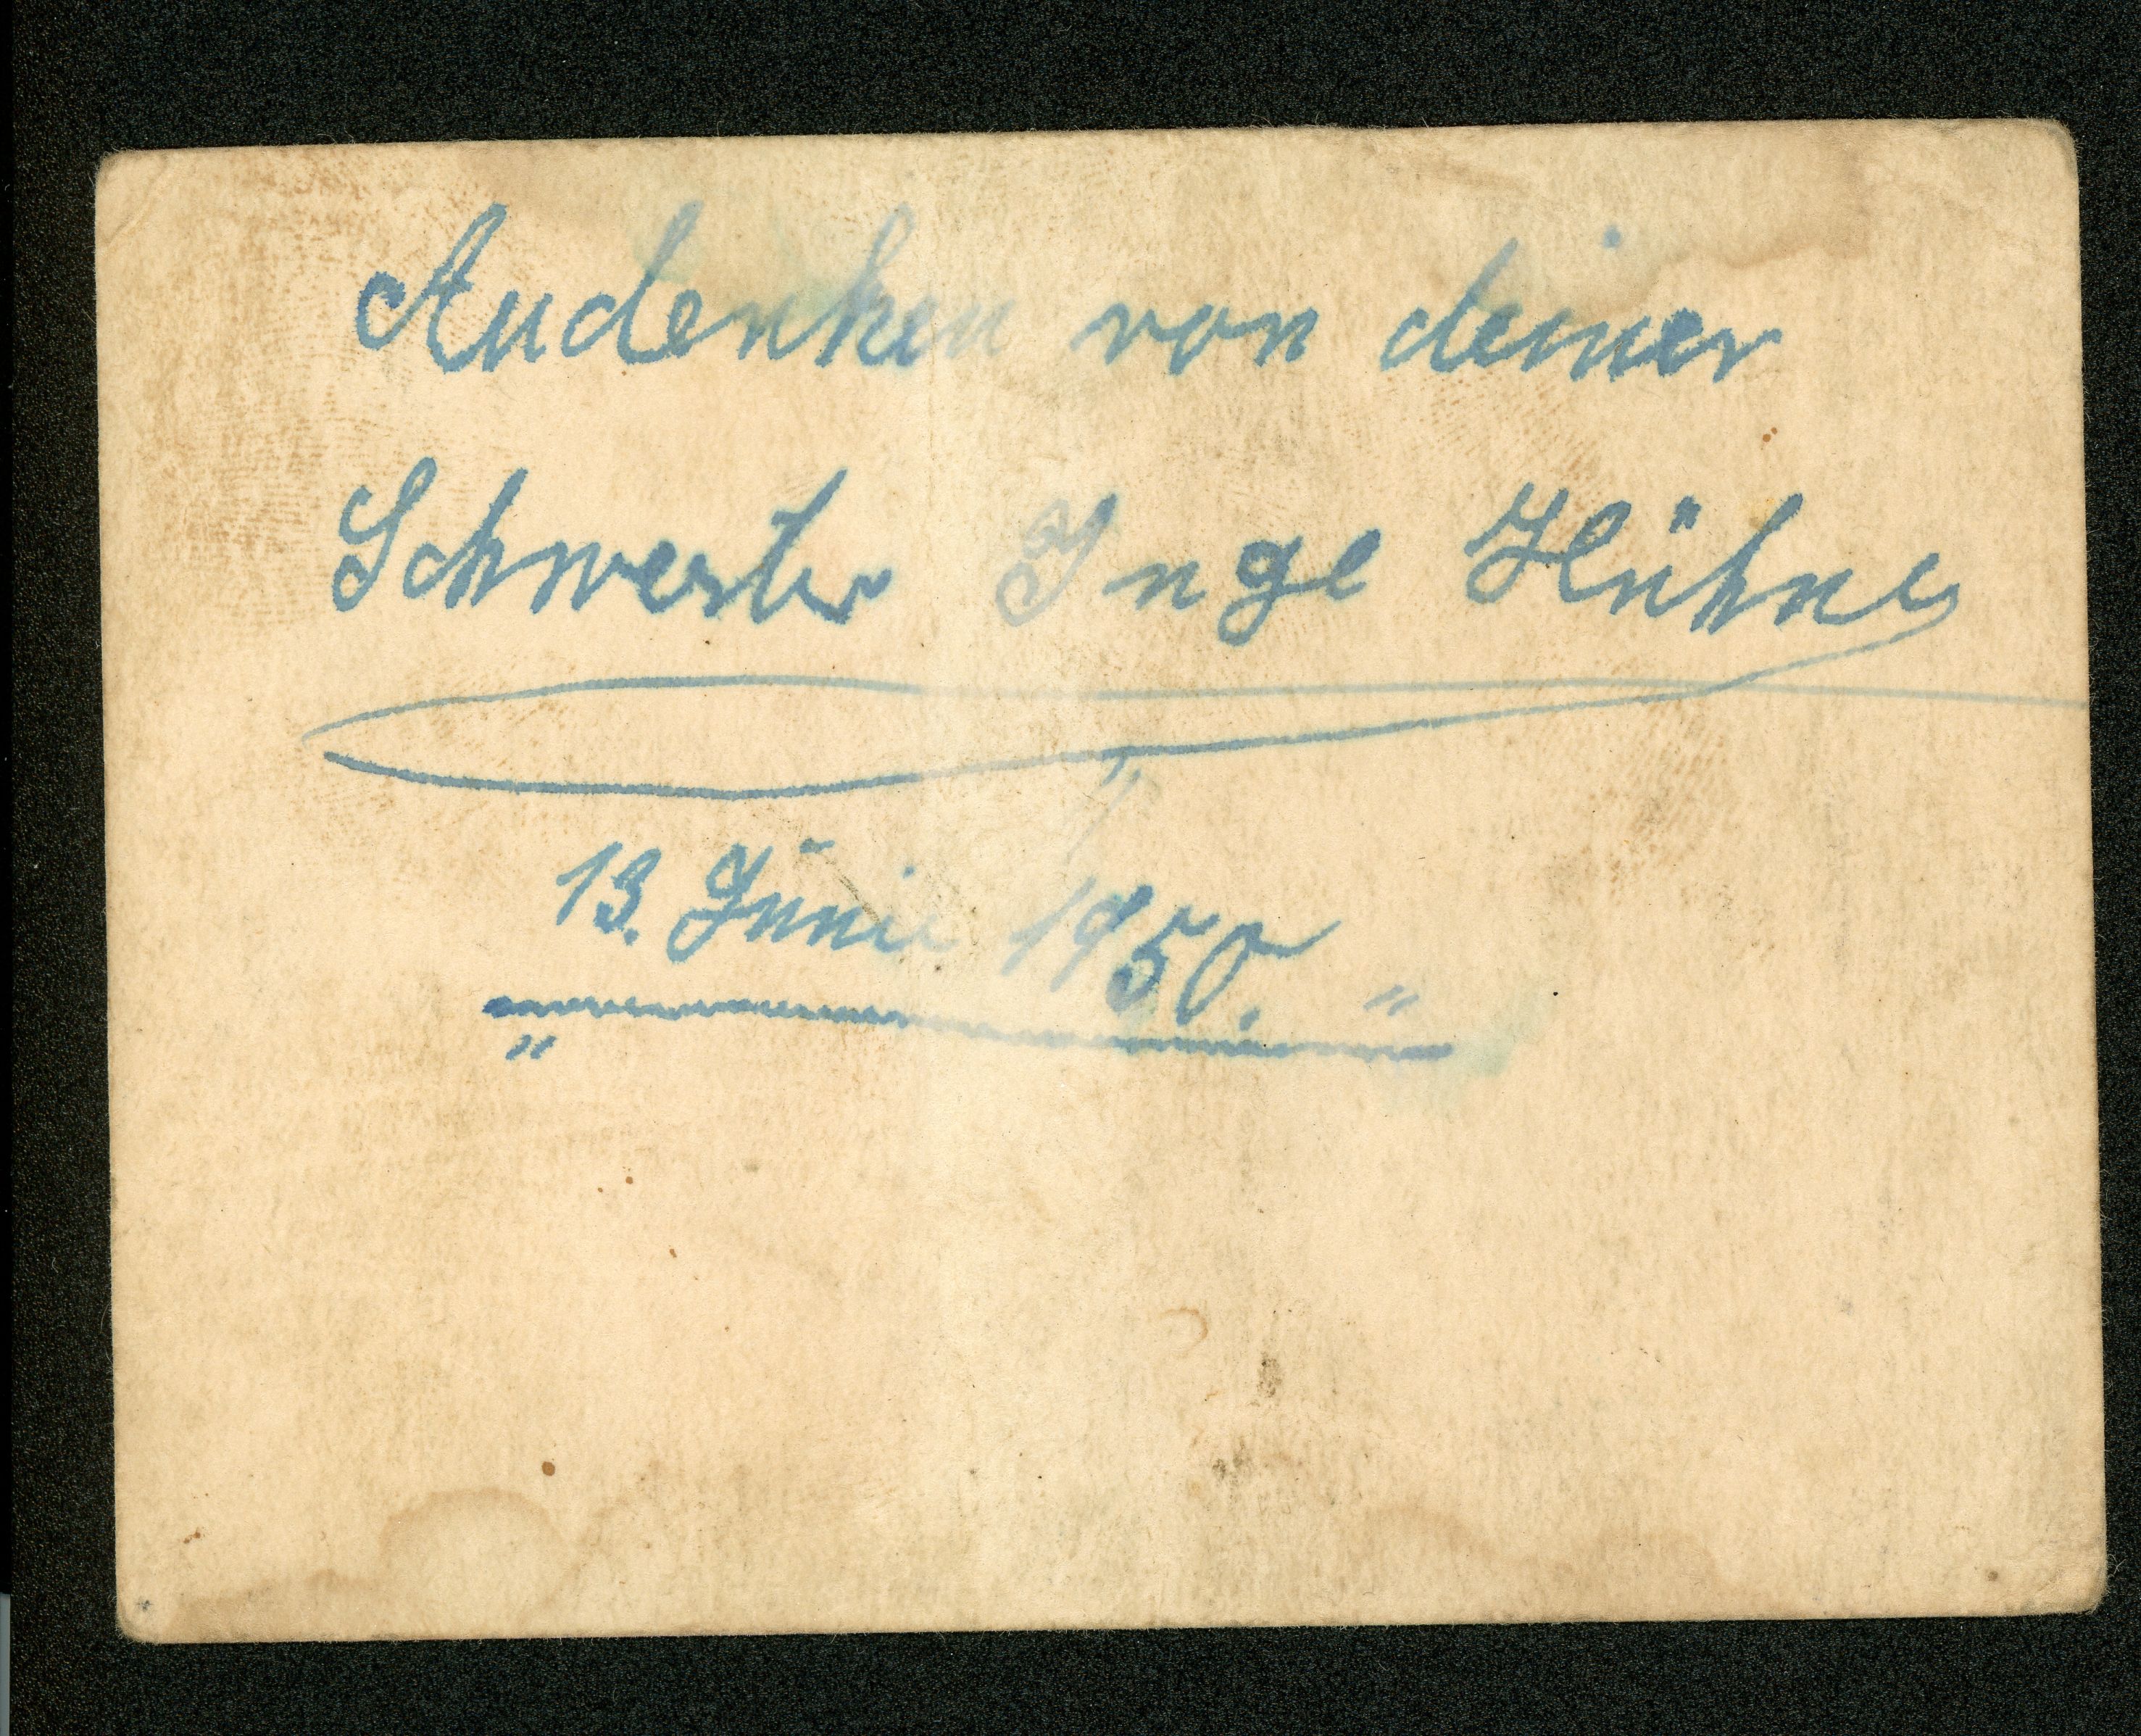 Andenken von deiner
Schwester Inge Kühne
13. Junie 1950.